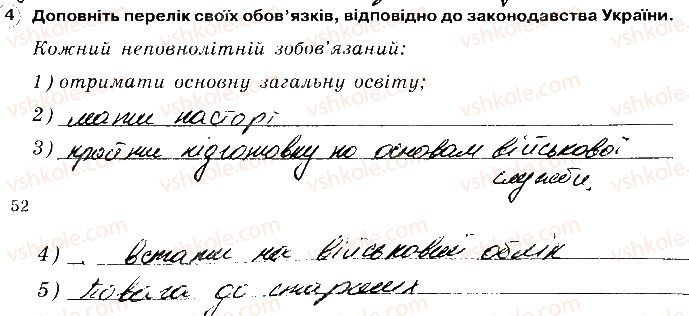 4 Доповніть перелік своїх обов'язків, відповідно до законодавства України.
Кожний неповнолітній зобов'язаний:
1) отримати основну загальну освіту;
2) мати паспорт
3) пройти підготовку по основам військової
служби
52
4) встати на військовий облік
5) Повага до старших
vshkole.com